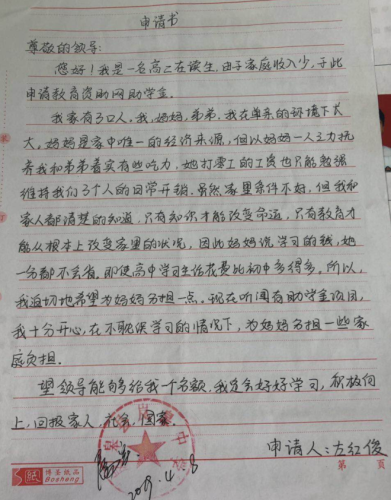 申请书
尊敬的领导:
您好!我是一名高二在读生,由于家庭收入少,于此
申请教育资助网助学金。
我家有3口人,我,妈妈,弟弟。我在单亲的环境下长
大。妈妈是家中唯一的经济来源,但以妈妈一人之力抚
养我和弟弟着实有些吃力。她打零工的工资也只能勉强
维持我们3个人的日常开销。虽然家里条件不好,但我和
家人都清楚的知道,只有知识才能改变命运,只有教育才
能从根本上改变家里的状况,因此妈妈说,学习的钱,她
一分都不会省。即使高中学习生活花费比初中多得多。所以,
我迫切地希望为妈妈分担一点。现在听闻有助学金项目,
我十分开心,在不耽误学习的情况下,为妈妈分担一些家
庭负担。
望领导能够给我一个名额,我定会好好学习,积极向
上,回报家人,社会,国家。
申请人:左红俊
2019.4.8
博圣纸品
Bosheng
第 页